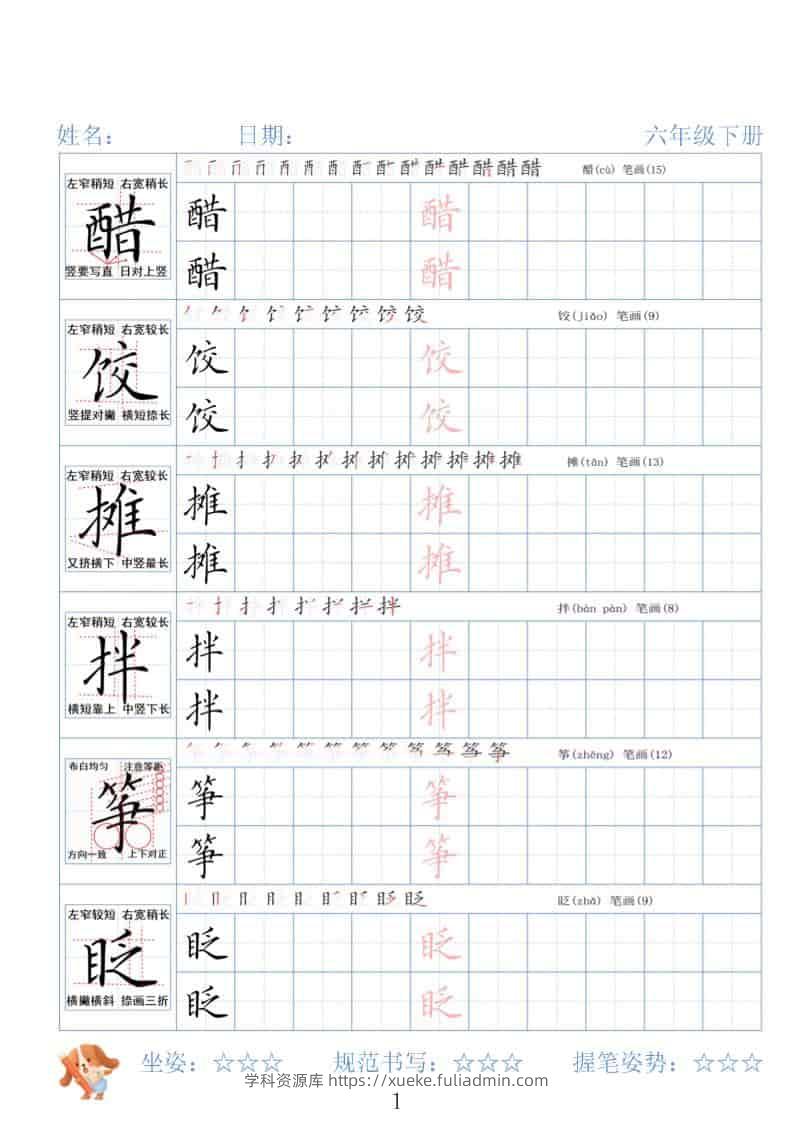 姓名： 日期： 六年级下册
醋(cù) 笔画(15)
左窄稍短 右宽稍长
醋
竖要写直 日对上竖
醋 醋
醋 醋
饺(jiǎo) 笔画(9)
左窄稍短 右宽较长
饺
竖提对撇 横短捺长
饺 饺
饺 饺
摊(tān) 笔画(13)
左窄稍短 右宽较长
摊
又挤横下 中竖最长
摊 摊
摊 摊
拌(bàn pàn) 笔画(8)
左窄稍短 右宽较长
拌
横短靠上 中竖下长
拌 拌
拌 拌
筝(zhēng) 笔画(12)
布白均匀 注意等距
筝
方向一致 上下对正
筝 筝
筝 筝
眨(zhǎ) 笔画(9)
左窄较短 右宽稍长
眨
横撇横斜 捺画三折
眨 眨
眨 眨
坐姿：☆☆☆ 规范书写：☆☆☆ 握笔姿势：☆☆☆
学科资源库 https://xueke.fuliadmin.com
1